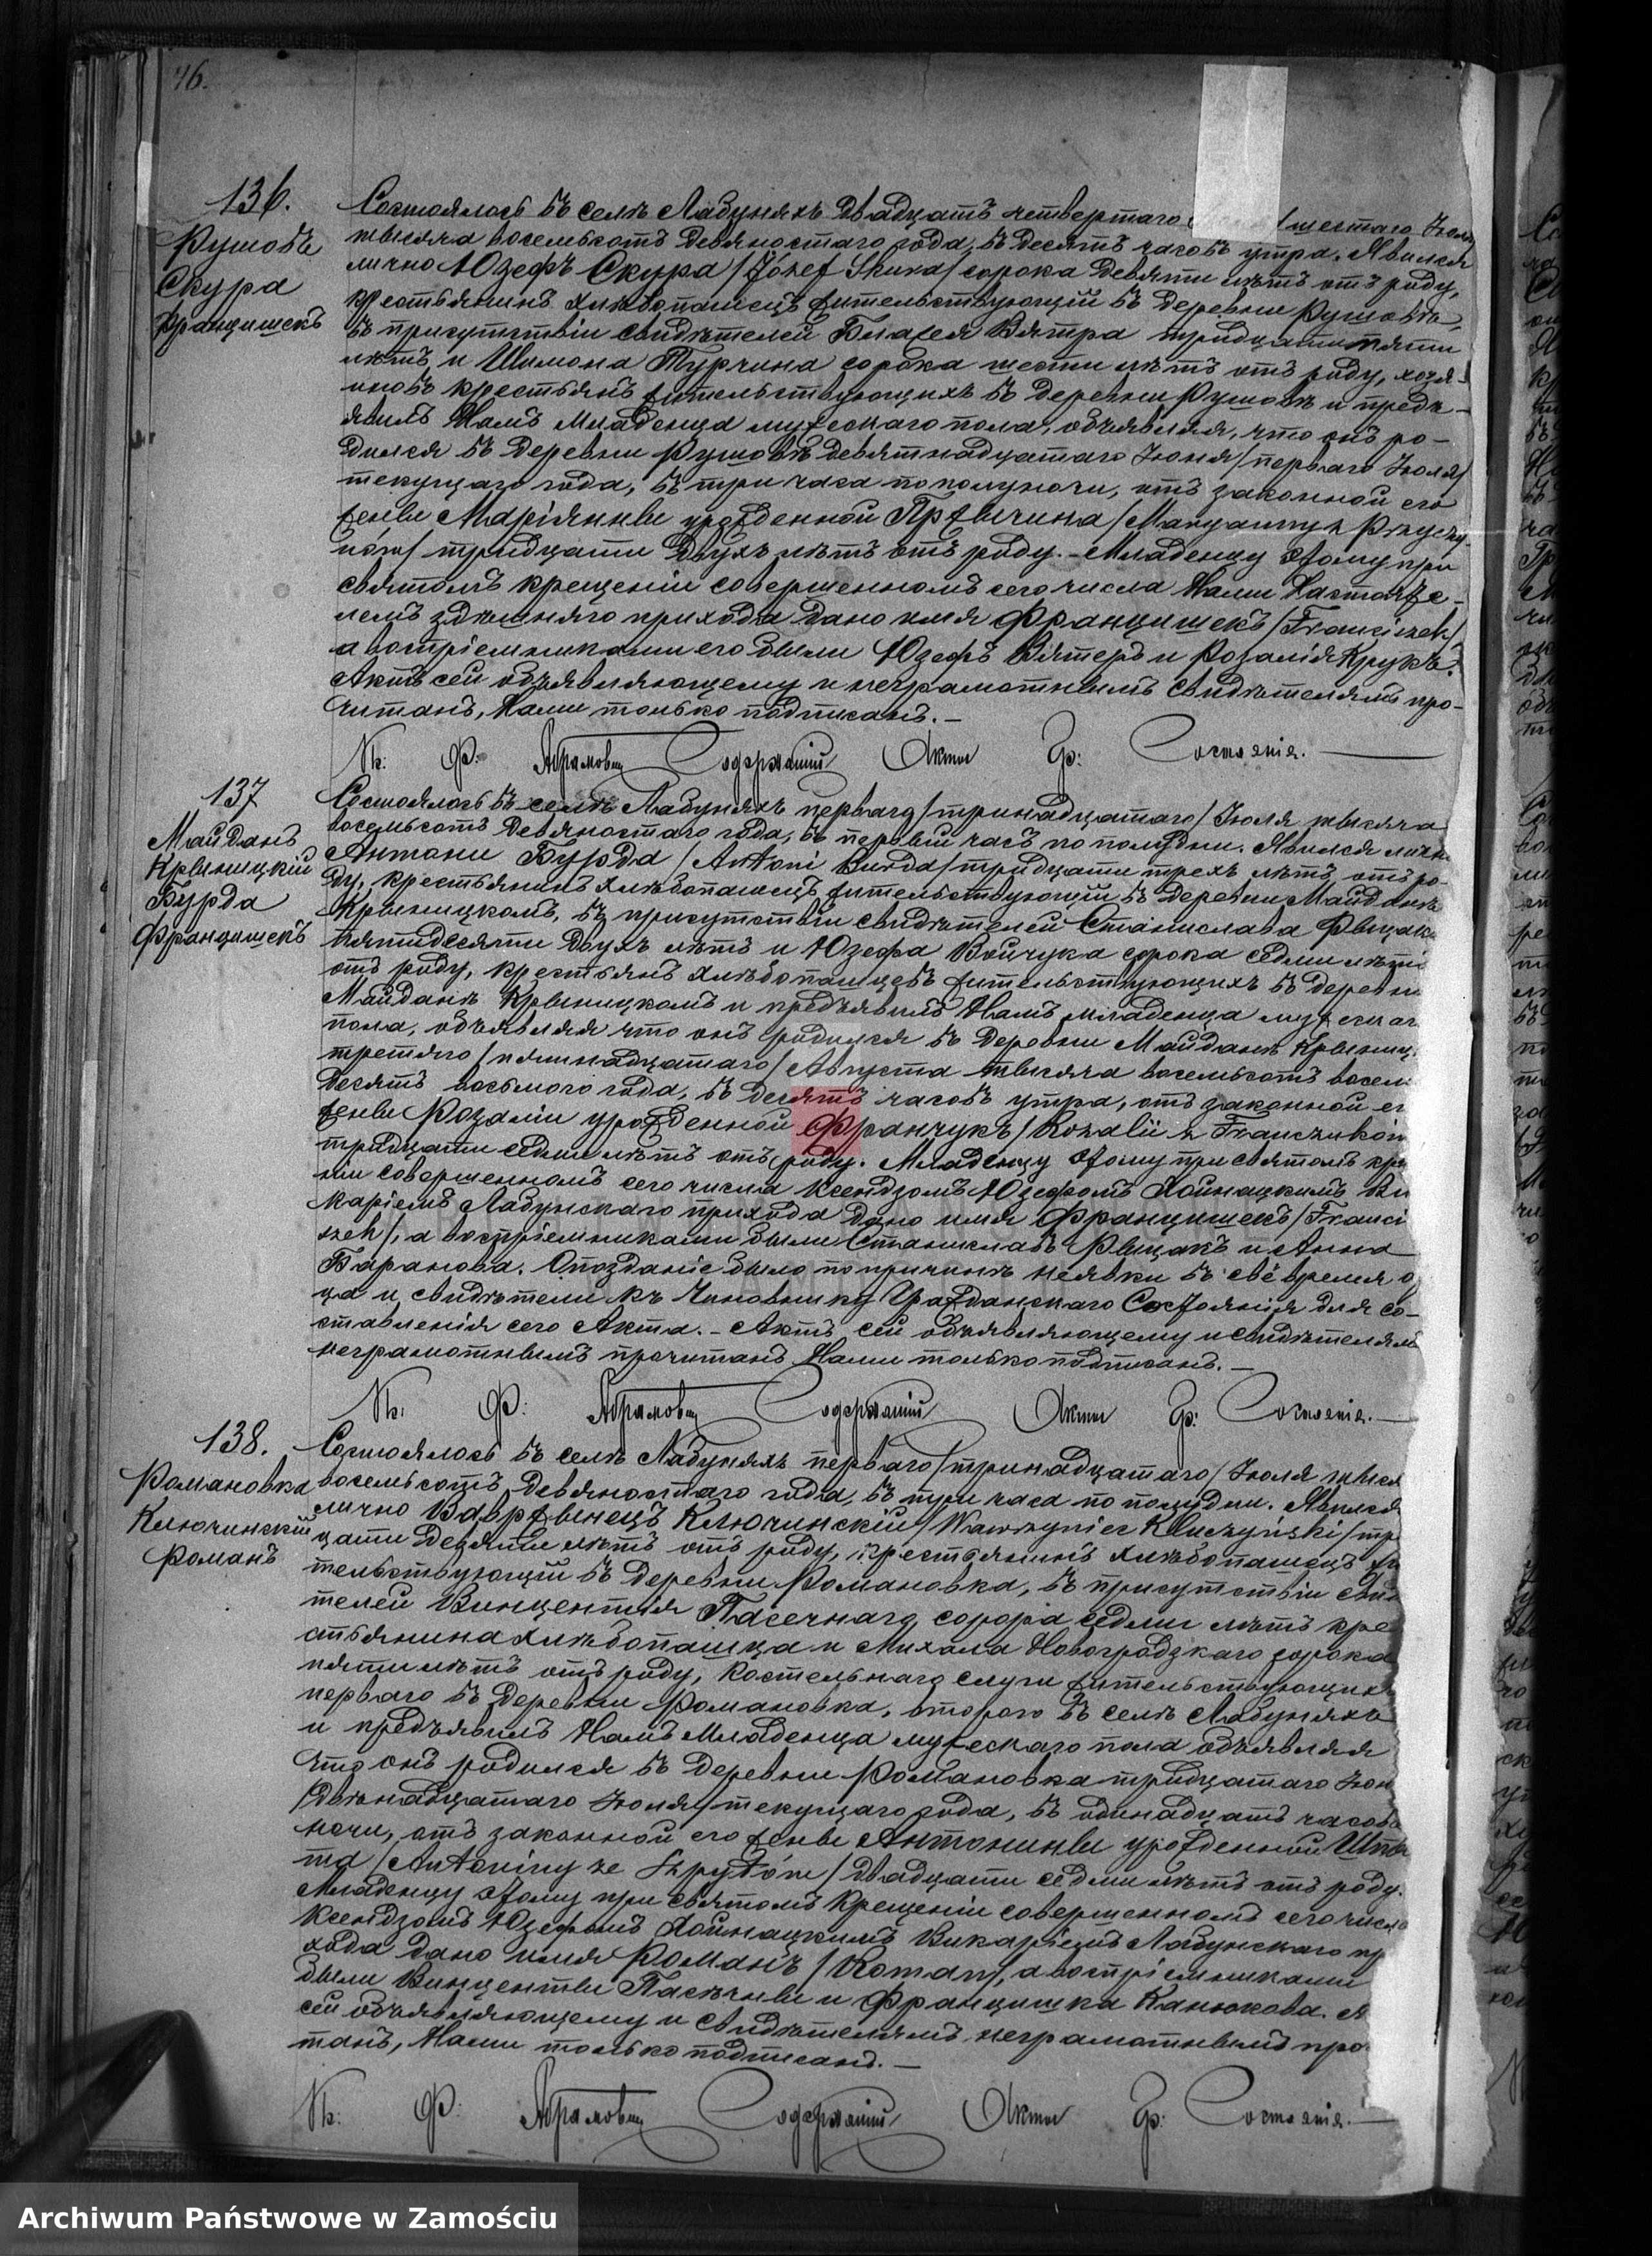 76.
136.
Рушовъ
Скура
Францишекъ
Состоялось въ селѣ Лабуняхъ двадцать четвертаго шестаго Іюля
тысяча восемьсотъ девяностаго года, въ десять часовъ утра. Явился
лично Юзефъ Скура /Józef Skura/ сорока девяти лѣтъ отъ роду,
крестьянинъ хлѣбопашецъ жительствующій въ деревни Рушовъ,
въ присутствіи свидѣтелей Блажея Вятра тридцати пяти
лѣтъ, и Шимона Турчина сорока шести лѣтъ отъ роду, хозя-
иновъ крестьянъ жительствующихъ въ деревни Рушовъ и предъ-
явилъ Намъ младенца мужескаго пола, объявляя, что онъ ро-
дился въ деревни Рушовѣ девятнадцатаго Іюня /перваго Іюля/
текущаго года, въ три часа по полуночи, отъ законной его
жены Маріянны урожденной /Maryanny z
тридцати двухъ лѣтъ отъ роду. - Младенцу этому при
святомъ крещеніи совершенномъ сего числа Нами Настояте-
лемъ здѣшняго прихода дано имя Францишекъ /Franciszek/
а воспріемниками его были Юзефъ Вятеръ и Розалія Крукъ.
Актъ сей объявляющему и неграмотнымъ свидѣтелямъ про-
читанъ, Нами только подписанъ. -
Кс: Ф: Абрамович Содержащій Акты Гр: Состоянія.
137
Майданъ
Крыницкій
Бурда
Францишекъ
Состоялось въ селѣ Лабуняхъ перваго /тринадцатаго/ Іюля тысяча
восемьсотъ девяностаго года, въ первый часъ по полудни. Явился лично
Антони Бурда /Antoni Burda/ тридцати трехъ лѣтъ отъ ро-
ду, крестьянинъ хлѣбопашецъ жительствующій въ деревни Майданѣ
Крыницкомъ, въ присутствіи свидѣтелей Станислава
пятидесяти двухъ лѣтъ и Юзефа Войчука сорока седми лѣтъ
отъ роду, крестьянъ хлѣбопашцевъ жительствующихъ въ деревни
Майданѣ Крыницкомъ и предъявилъ Намъ младенца мужескаг
пола, объявляя что онъ родился въ деревни Майданѣ Крыниц
третяго /пятнадцатаго/ Августа тысяча восемьсотъ восем
десять восьмого года, въ десять часовъ утра, отъ законной ег
жены Розаліи урожденной Франчукъ /Rozalii z Franczuków
тридцати седми лѣтъ отъ роду. Младенцу этому при святомъ кре
ніи совершенномъ сего числа Ксендзомъ Юзефомъ Хойнацкимъ Ви
каріемъ Лабунскаго прихода дано имя Францишекъ /Franci
szek/, а воспріемниками были Станиславъ и Анна
Баранова. Опозданіе было по причинѣ неявки въ своё время о
ца и свидѣтели къ Чиновнику Гражданскаго Состоянія для со-
ставленія сего Акта. - Актъ сей объявляющему и свидѣтелямъ
неграмотнымъ прочитанъ Нами только подписанъ. -
Кс: Ф: Абрамович Содержащій Акты Гр: Состоянія.
138.
Романовка
Ключинскій
Романъ
Состоялось въ селѣ Лабуняхъ перваго /тринадцатаго/ Іюля тыся
восемьсотъ девяностаго года, въ три часа по полудни. Явился
лично Вавржынецъ Ключинскій /Wawrzyniec Kluczyński/ тр
цати девяти лѣтъ отъ роду, крестьянинъ хлѣбопашецъ жи
тельствующій въ деревни Романовка, въ присутствіи свид
телей Винцентія Пасечнаго, сорора седми лѣтъ кре
стьянина хлѣбопашца и Михала Новогродзкаго сорока
пяти лѣтъ отъ роду, костельнаго слуги жительствующих
перваго въ деревни Романовка, второго въ селѣ Лабуняхъ
и предъявилъ Намъ младенца мужескаго пола объявляя
что онъ родился въ деревни Романовка тридцатаго Іюн
/двѣнадцатаго Іюля/ текущаго года, въ одинадцать часовъ
ночи, отъ законной его жены Антонины урожденной Шпы
та /Antoniny ze Szpytów/ двадцати седми лѣтъ отъ роду.
Младенцу этому при святомъ крещеніи совершенномъ сего числа
Ксендзомъ Юзефомъ Хойнацкимъ Викаріемъ Лабунскаго пр
хода дано имя Романъ /Roman/, а воспріемниками
были Винценты Пасѣчны и Францишка Канюкова. А
сей объявляющему и свидѣтелямъ неграмотнымъ про
танъ, Нами только подписанъ. -
Кс: Ф: Абрамович Содержащій Акты Гр: Состоянія.
Archiwum Państwowe w Zamościu